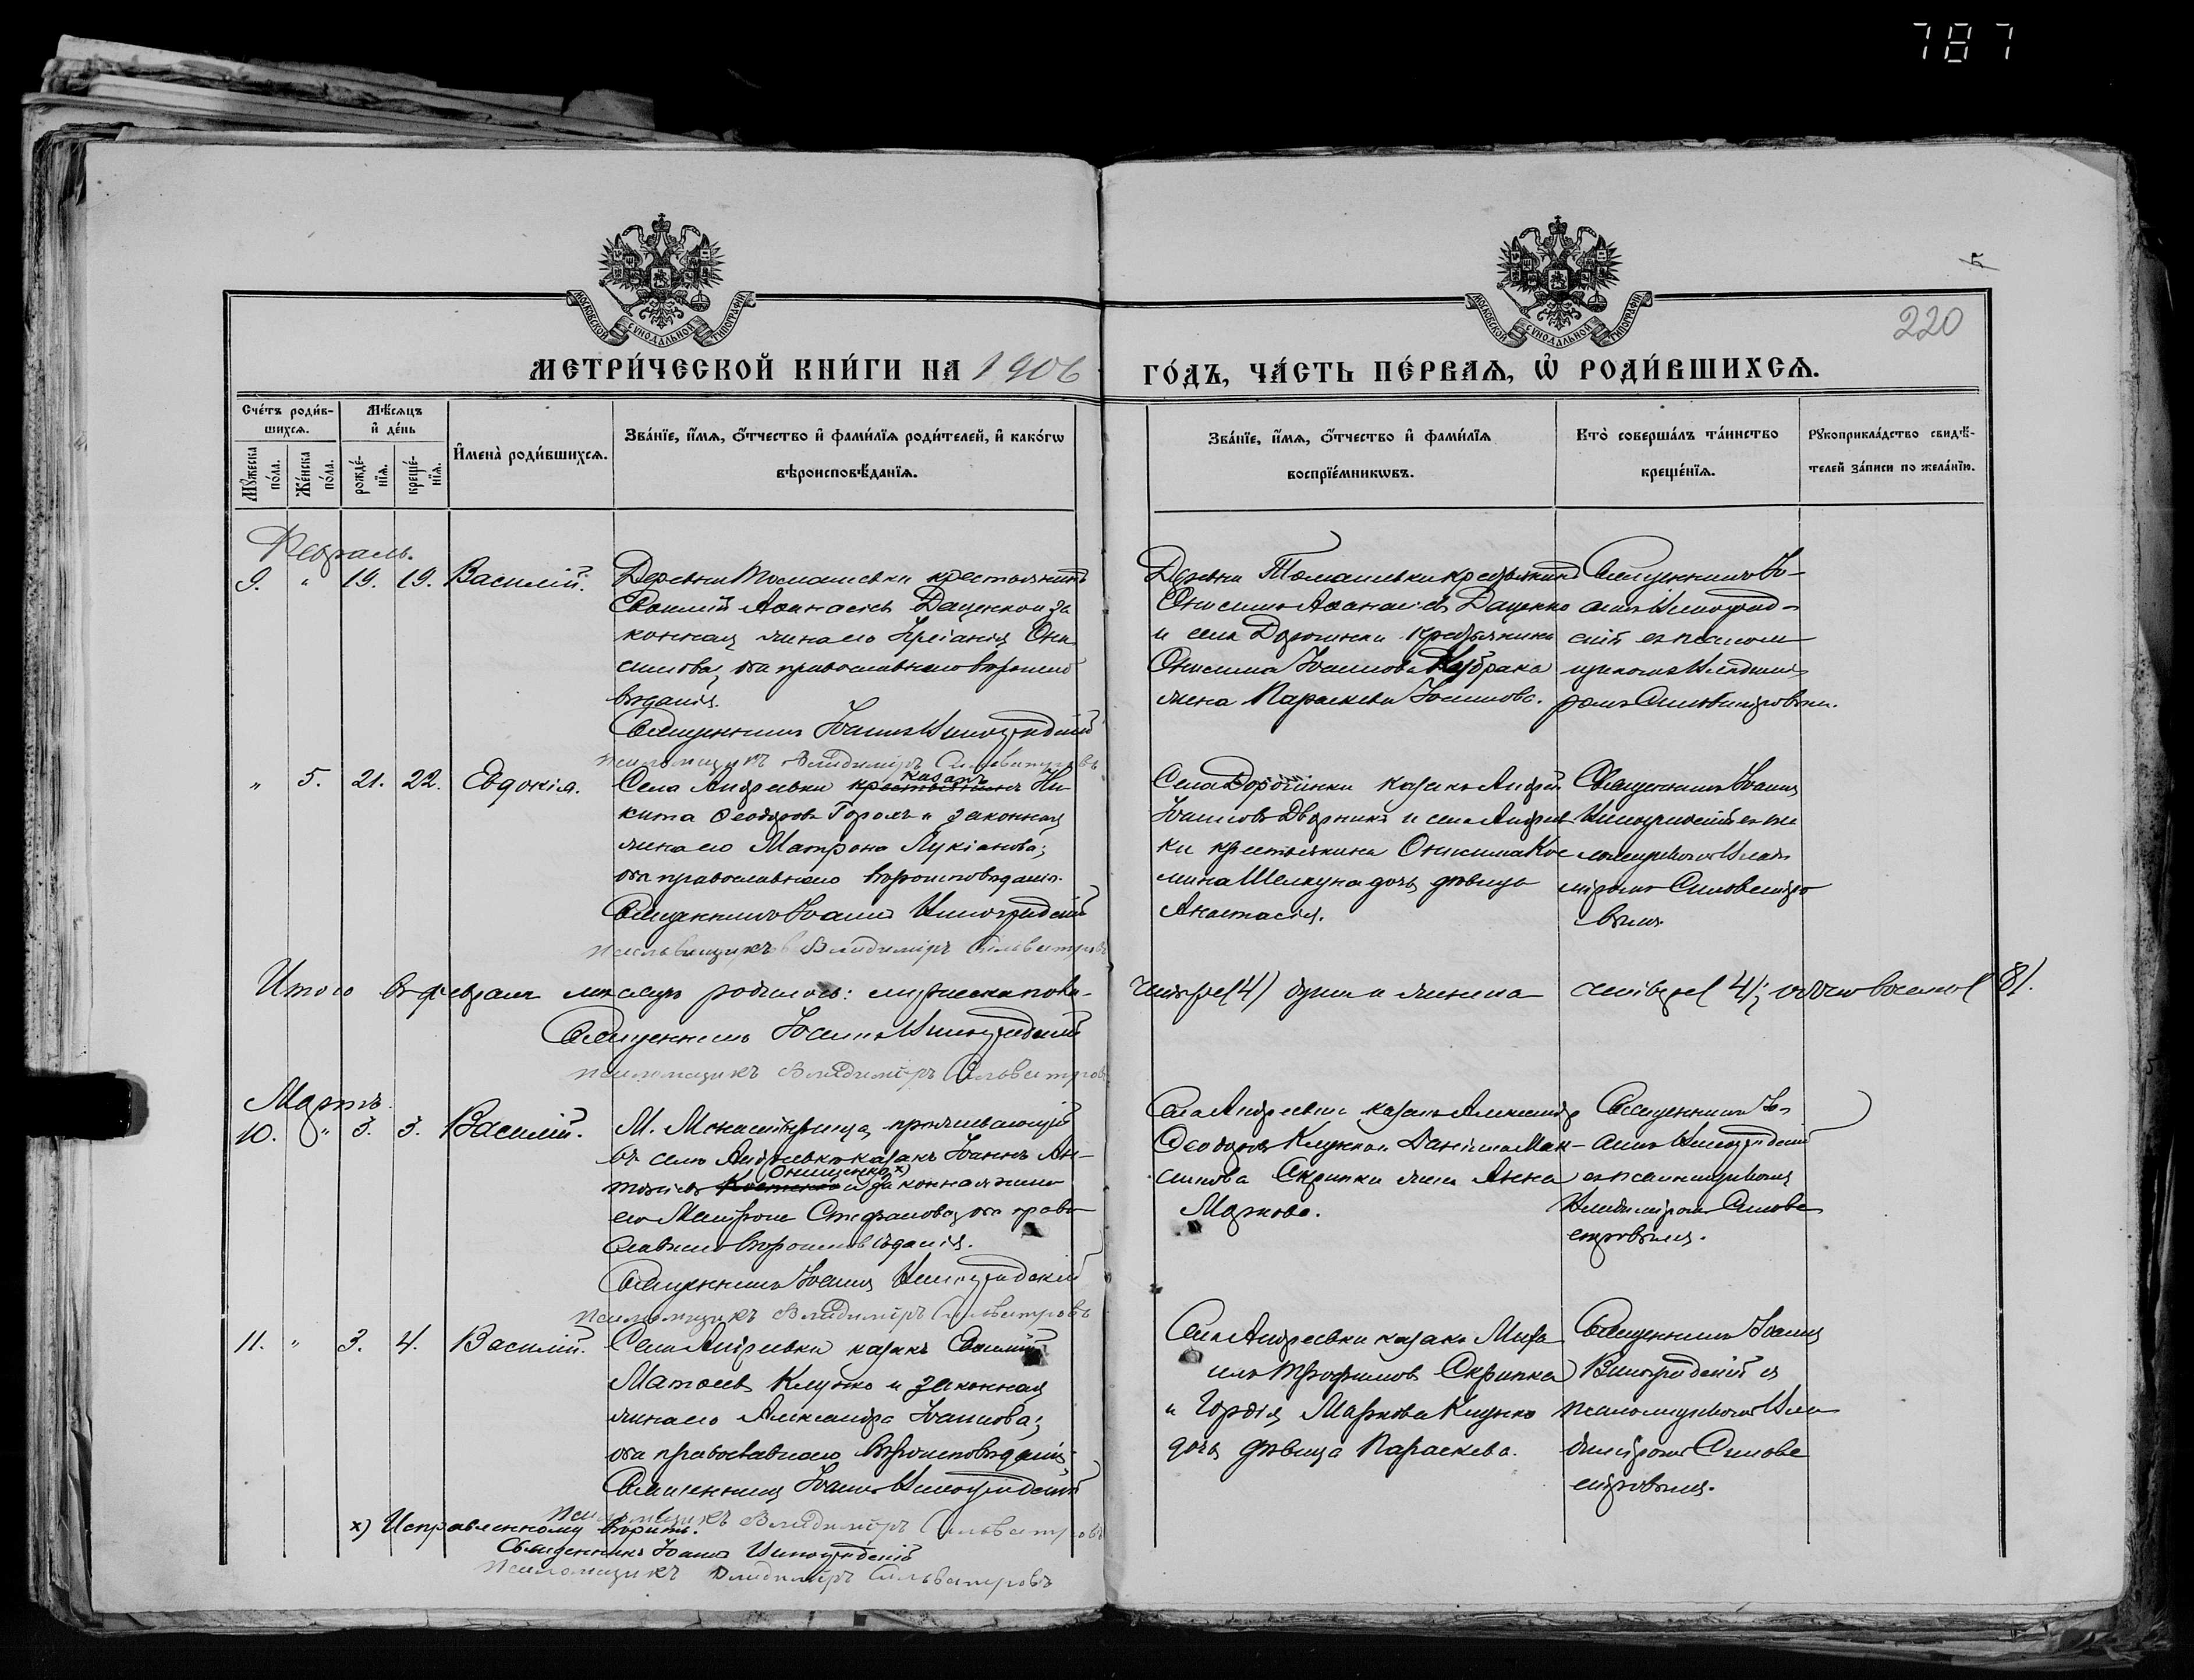 787
220
МОСКОВСКОЙ СѴНОДАЛЬНОЙ ТИПОГРАФІИ
МОСКОВСКОЙ СѴНОДАЛЬНОЙ ТИПОГРАФІИ
МЕТРИ́ЧЕСКОЙ КНИ́ГИ НА 1906 ГО́ДЪ, ЧА́СТЬ ПЕ́РВАѦ, Ѡ҆ РОДИ́ВШИХСѦ.
Сче́тъ роди́в-
шихсѧ.
Мꙋ́жеска по́ла.
Же́нска по́ла.
Мѣ́сѧцъ и҆ де́нь
рожде́-
нїѧ.
креще́-
нїѧ.
И҆мена̀ роди́вшихсѧ.
Зва́нїе, и҆́мѧ, ѻ҆́тчество и҆ фами́лїѧ роди́телей, и҆ како́гѡ
вѣроисповѣ́данїѧ.
Зва́нїе, и҆́мѧ, ѻ҆́тчество и҆ фами́лїѧ
воспрїе́мникѡвъ.
Кто̀ соверша́лъ та́инство
креще́нїѧ.
Рꙋкоприкла́дство свидѣ́-
телей за́писи по жела́нїю.
Февраль.
9. " 19. 19. Василій.
Деревни Томашевки крестьянинъ
Василій Аѳанасіевъ Даценко и за
конная жена его Ксенія Они
симова, оба православнаго вѣроиспо
вѣданія.
Священникъ Іоаннъ Виноградскій
Псаломщикъ Владиміръ Сильвестровъ
Деревни Томашевки крестьянинъ
Онисимъ Аѳанасіевъ Даценко
и села Дорошенки крестьянина
Онисима Іоаннова
жена Параскева Іоаннова.
Священникъ Іо-
аннъ Виноград-
скій съ псалом
щикомъ Влади
міромъ Сильвестровымъ.
" 5. 21. 22. Евдокія.
Села Андреевки крестьянинъ казакъ Ни
кита Ѳеодоровъ и законная
жена его Матрона Лукіанова;
оба православнаго вѣроисповѣданія.
Священникъ Іоаннъ Виноградскій
Псаломщикъ Владиміръ Сильвестровъ
Села казакъ Андрей
Іоанновъ Дворникъ и села Андреев
ки крестьянина Онисима Кос
мина дочь дѣвица
Анастасія.
Священникъ Іоаннъ
Виноградскій съ пса
ломщикомъ Влади
міромъ Сильвестро
вымъ.
Итого въ февралѣ мѣсяцѣ родилось: мужеска пола четыре (4) души и женска четыре (4); всего восемь (8).
Священникъ Іоаннъ Виноградскій
Псаломщикъ Владиміръ Сильвестровъ
Мартъ.
10. " 3. 3. Василій.
М. Монастырища, проживающій
въ селѣ Андреевкѣ казакъ Іоаннъ Ан-
тоніевъ Онищенко х) и законная жена
его Матрона Стефанова, оба право
славнаго вѣроисповѣданія.
Священникъ Іоаннъ Виноградскій
Псаломщикъ Владиміръ Сильвестровъ
Села Андреевки казакъ Александръ
Ѳеодоровъ Клунко и Даніила Мак-
симова Скрипки жена Анна
Маркова.
Священникъ Іо-
аннъ Виноградскій
съ псаломщикомъ
Владиміромъ Сильве
стровымъ.
11. " 3. 4. Василій.
Села Андреевки казакъ Василій
Матѳіевъ Клунко и законная
жена его Александра Іоаннова;
оба православнаго вѣроисповѣданія.
Священникъ Іоаннъ Виноградскій
Псаломщикъ Владиміръ Сильвестровъ
Села Андреевки казакъ Миха
илъ Трофимовъ Скрипка
и Гордія Маркова Клунко
дочь дѣвица Параскева.
Священникъ Іоаннъ
Виноградскій съ
псаломщикомъ Вла
диміромъ Сильве
стровымъ.
х) Исправленному вѣрить.
Священникъ Іоаннъ Виноградскій
Псаломщикъ Владиміръ Сильвестровъ